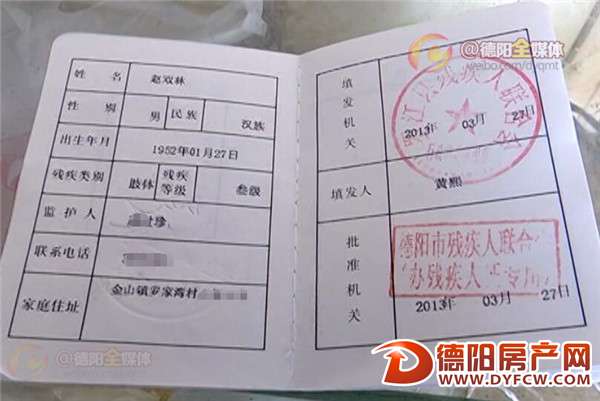 @德阳全媒体
姓名 赵双林
性别 男 民族 汉族
出生年月 1952年01月27日
残疾类别 肢体 残疾等级 叁级
监护人 珍
联系电话
家庭住址 金山镇罗家湾村
填发机关 2013年 03月 27日
江县残疾人联合会
填发人 黄熙
批准机关
德阳市残疾人联合
办残疾人证专用
2013年 03月 27日
@德阳全媒体
德阳房产网
WWW.DYFCW.COM